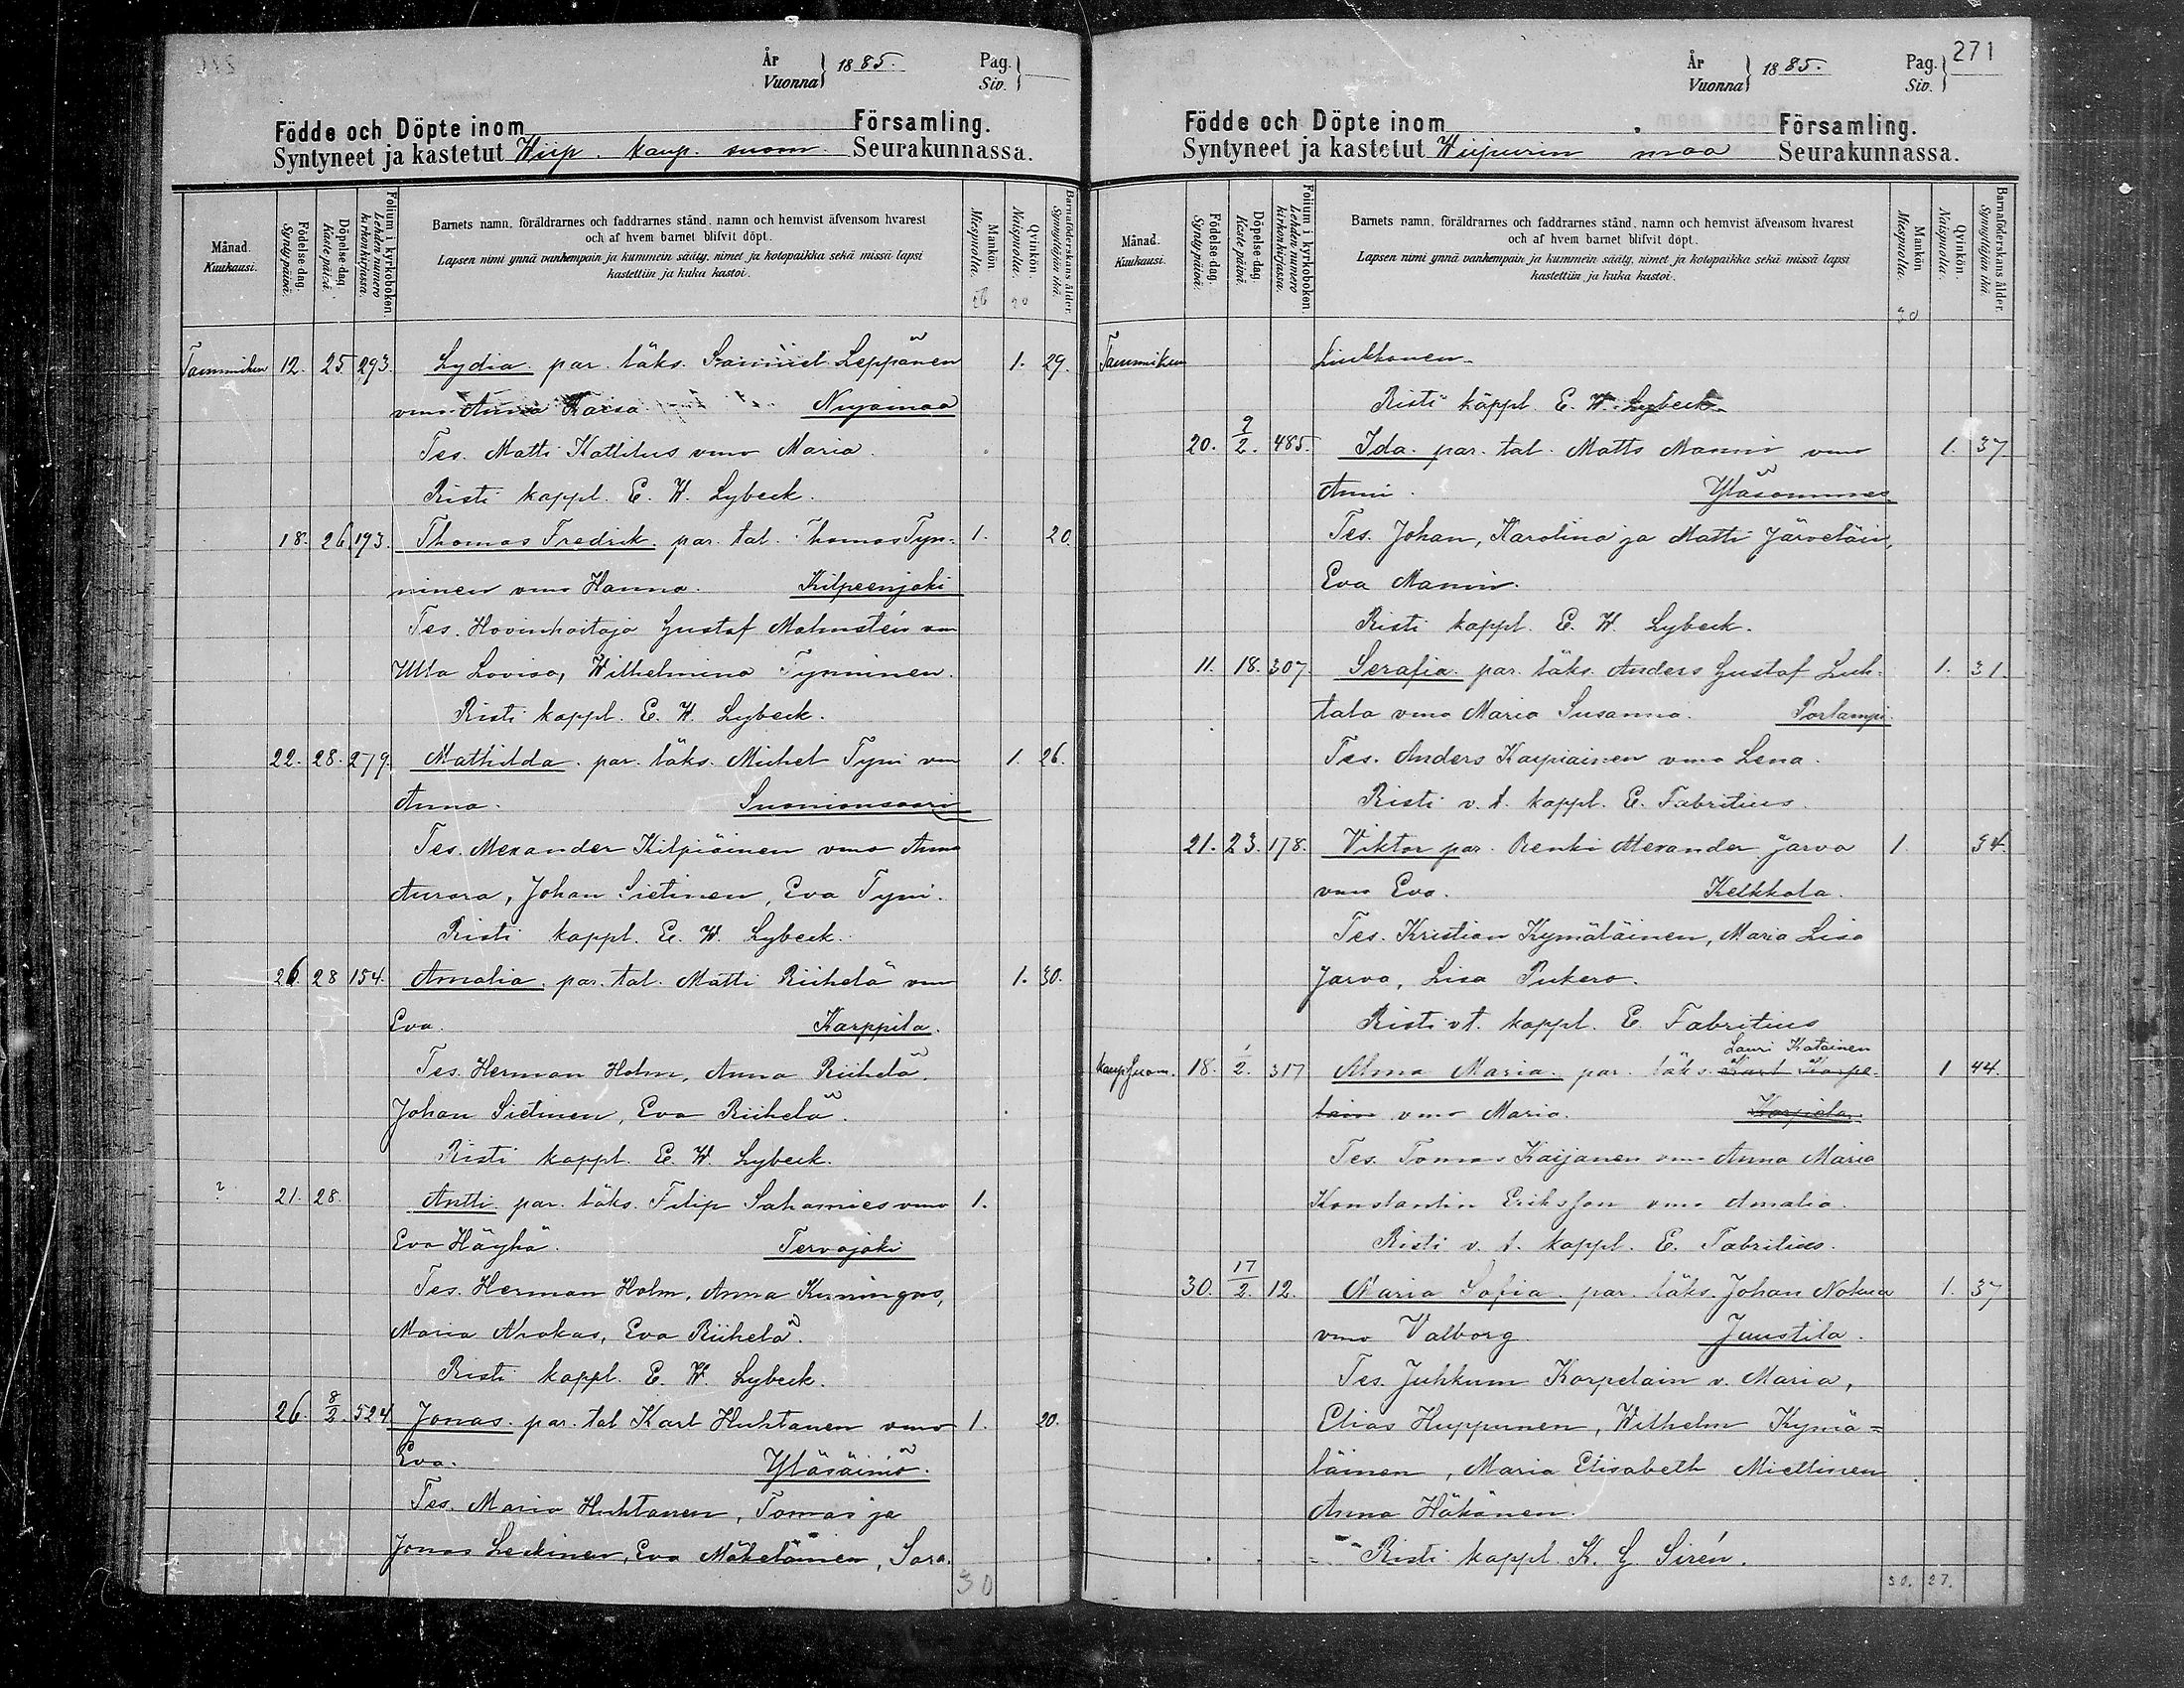 År
Vuonna
1885.
Pag.
Siv.
Födde och Döpte inom Församling.
Syntyneet ja kastetut Wiip. kaup. suom. Seurakunnassa.
Månad.
Kuukausi.
Födelse-dag.
Synty päivä.
Döpelse-dag.
Kaste päivä.
Folium i kyrkoboken
Lehden numero kirkonkirjassa.
Barnets namn, föräldrarnes och faddrarnes stånd, namn och hemvist äfvensom hvarest
och af hvem barnet blifvit döpt.
Lapsen nimi ynnä vanhempain ja kummein sääty, nimet ja kotopaikka sekä missä lapsi
kastettiin ja kuka kastoi.
Mankön.
Miespuolia.
Qvinkön.
Naispuolia.
Barnaföderskans ålder.
Synnyttäjän ikä.
Tammikuu 12. 25 293. Lydia par. läks. Samuel Leppänen 1. 29.
vmo Anna Kaisa Nuijamaa
Tes. Matti Kattilus vmo Maria.
Risti kappl. E. W. Lybeck.
18. 26 193. Thomas Fredrik par. tal. Thomas Tyn- 1. 20.
ninen vmo Hanna. Kilpeenjoki
Tes. Hovinhoitaja Gustaf Malmstén vm
Ulla Lovisa, Wilhelmina Tynninen.
Risti kappl. E. W. Lybeck.
22. 28. 279. Mathilda par. läks. Michel Tyni vm 1. 26.
Anna. Suonionsaari
Tes. Alexander Kilpiäinen vmo Anna
Aurora, Johan Sietinen, Eva Tyni.
Risti kappl. E. W. Lybeck.
26. 28 154. Amalia par. tal. Matti Riihelä vm 1. 30.
Eva. Karppila.
Tes. Herman Holm, Anna Riihelä.
Johan Sietinen, Eva Riihelä.
Risti kappl. E. W. Lybeck.
? 21. 28. Antti par. läks. Filip Sahamies vmo 1.
Eva Häyhä. Tervajoki
Tes. Herman Holm, Anna Kuningas,
Maria Nrokas, Eva Riihelä.
Risti kappl. E. W. Lybeck.
26. 8/2. 524 Jonas par. tal Karl Huhtanen vmo 1. 20.
Eva. Yläsäiniö.
Tes. Maria Huhtanen, Tomas ja
Jonas Leskinen, Eva Mäkeläinen, Sara
30
271
År
Vuonna
1885.
Pag.
Siv.
Födde och Döpte inom Församling.
Syntyneet ja kastetut Wiipurin maa Seurakunnassa.
Månad.
Kuukausi.
Födelse-dag.
Synty päivä.
Döpelse-dag.
Kaste päivä.
Folium i kyrkoboken.
Lehden numero kirkonkirjassa.
Barnets namn, föräldrarnes och faddrarnes stånd, namn och hemvist äfvensom hvarest
och af hvem barnet blifvit döpt.
Lapsen nimi ynnä vanhempain ja kummein sääty, nimet ja kotopaikka sekä missä lapsi
kastettiin ja kuka kastoi.
Mankön
Miespuolia.
Qvinkön.
Naispuolia.
Barnaföderskans ålder.
Synnyttäjän ikä.
30
Tammikuu Liukkonen.
Risti kappl. E. W. Lybeck.
20. 9/2. 485. Ida par. tal. Matts Manni vmo 1. 37
Anni. Yläsommee
Tes. Johan, Karolina ja Matti Järveläin,
Eva Mannin.
Risti kappl. E. W. Lybeck.
11. 18. 307. Serafia par. läks. Anders Gustaf Luh- 1. 31.
tala vmo Maria Susanna. Porlampi
Tes. Anders Karpiainen vmo Lena.
Risti v. t. kappl. E. Fabritius.
21. 23. 178. Viktor par. Renki Alexander Jarva 1. 34.
vmo Eva. Kelkkala.
Tes. Kristian Kymäläinen, Maria Lisa
Jarva, Lisa Pukero.
Risti v.t. kappl. E. Fabritius
Lauri Katainen
kaup Suom. 18. 1/2. 317 Alma Maria par. läks. Karl Karpe- 1 44.
lain vmo Maria. Karpiela.
Tes. Tomas Kaijanen vmo Anna Maria
Konstantin Eriksson vmo Amalia.
Risti v. t. kappl. E. Fabritius.
30. 17/2. 12. Maria Sofia par. läks. Johan Nokua 1. 37
vmo Valborg. Juustila.
Tes. Juhkum Korpelain v. Maria,
Elias Huppunen, Wilhelm Kymä=
läinen, Maria Elisabeth Miettinen
Anna Häkänen.
Risti kappl. K. G. Sirén.
30. 27.